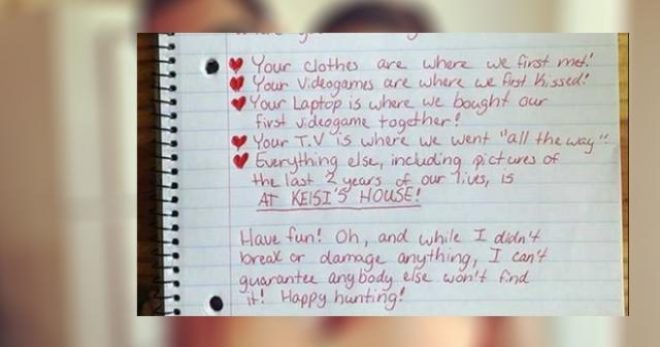 ♥ Your clothes are where we first met!
♥ Your Videogames are where we first kissed!
♥ Your Laptop is where we bought our
first videogame together!
♥ Your T.V is where we went "all the way"!
♥ Everything else, including pictures of
the last 2 years of our lives, is
AT KEISI'S HOUSE!
Have fun! Oh, and while I didn't
break or damage anything, I can't
guarantee anybody else won't find
it! Happy hunting!